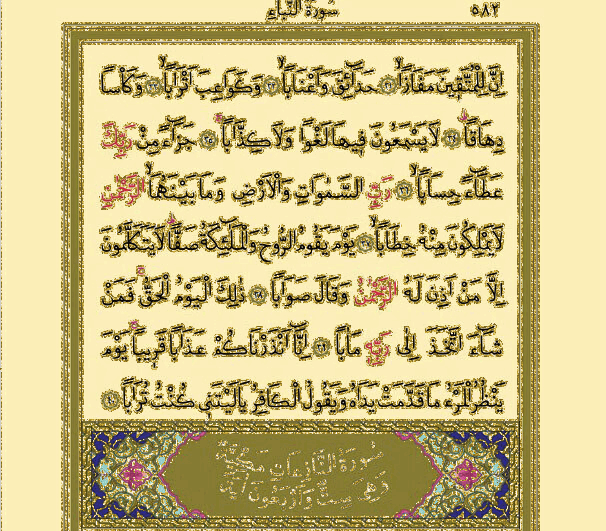 سورة النبإ ٥٨٣
إِنَّ لِلْمُتَّقِينَ مَفَازًا ﴿٣١﴾ حَدَائِقَ وَأَعْنَابًا ﴿٣٢﴾ وَكَوَاعِبَ أَتْرَابًا ﴿٣٣﴾ وَكَأْسًا
دِهَاقًا ﴿٣٤﴾ لَا يَسْمَعُونَ فِيهَا لَغْوًا وَلَا كِذَّابًا ﴿٣٥﴾ جَزَاءً مِنْ رَبِّكَ
عَطَاءً حِسَابًا ﴿٣٦﴾ رَبِّ السَّمٰوَاتِ وَالْأَرْضِ وَمَا بَيْنَهُمَا الرَّحْمٰنِ
لَا يَمْلِكُونَ مِنْهُ خِطَابًا ﴿٣٧﴾ يَوْمَ يَقُومُ الرُّوحُ وَالْمَلٰئِكَةُ صَفًّا لَا يَتَكَلَّمُونَ
إِلَّا مَنْ أَذِنَ لَهُ الرَّحْمٰنُ وَقَالَ صَوَابًا ﴿٣٨﴾ ذٰلِكَ الْيَوْمُ الْحَقُّ فَمَنْ
شَاءَ اتَّخَذَ إِلٰى رَبِّهِ مَاٰبًا ﴿٣٩﴾ إِنَّا أَنْذَرْنَاكُمْ عَذَابًا قَرِيبًا يَوْمَ
يَنْظُرُ الْمَرْءُ مَا قَدَّمَتْ يَدَاهُ وَيَقُولُ الْكَافِرُ يَا لَيْتَنِي كُنْتُ تُرَابًا ﴿٤٠﴾
سُورَةُ النَّازِعَاتِ مَكِّيَّةٌ
وَهِيَ سِتٌّ وَأَرْبَعُونَ اٰيَةً